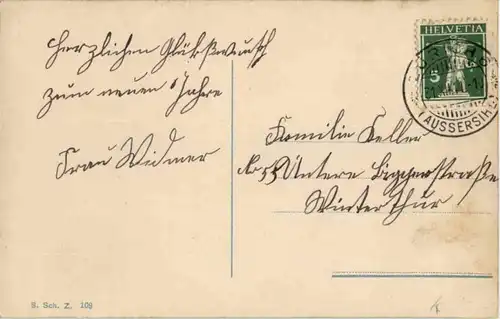 Herzlichen Glükswunsch
zum neuen Jahre
Frau Widmer
HELVETIA
5
AUSSERSIHL
Familie Keller
No 55 Untere Briggerstraße
Winterthur
S. Sch. Z. 109